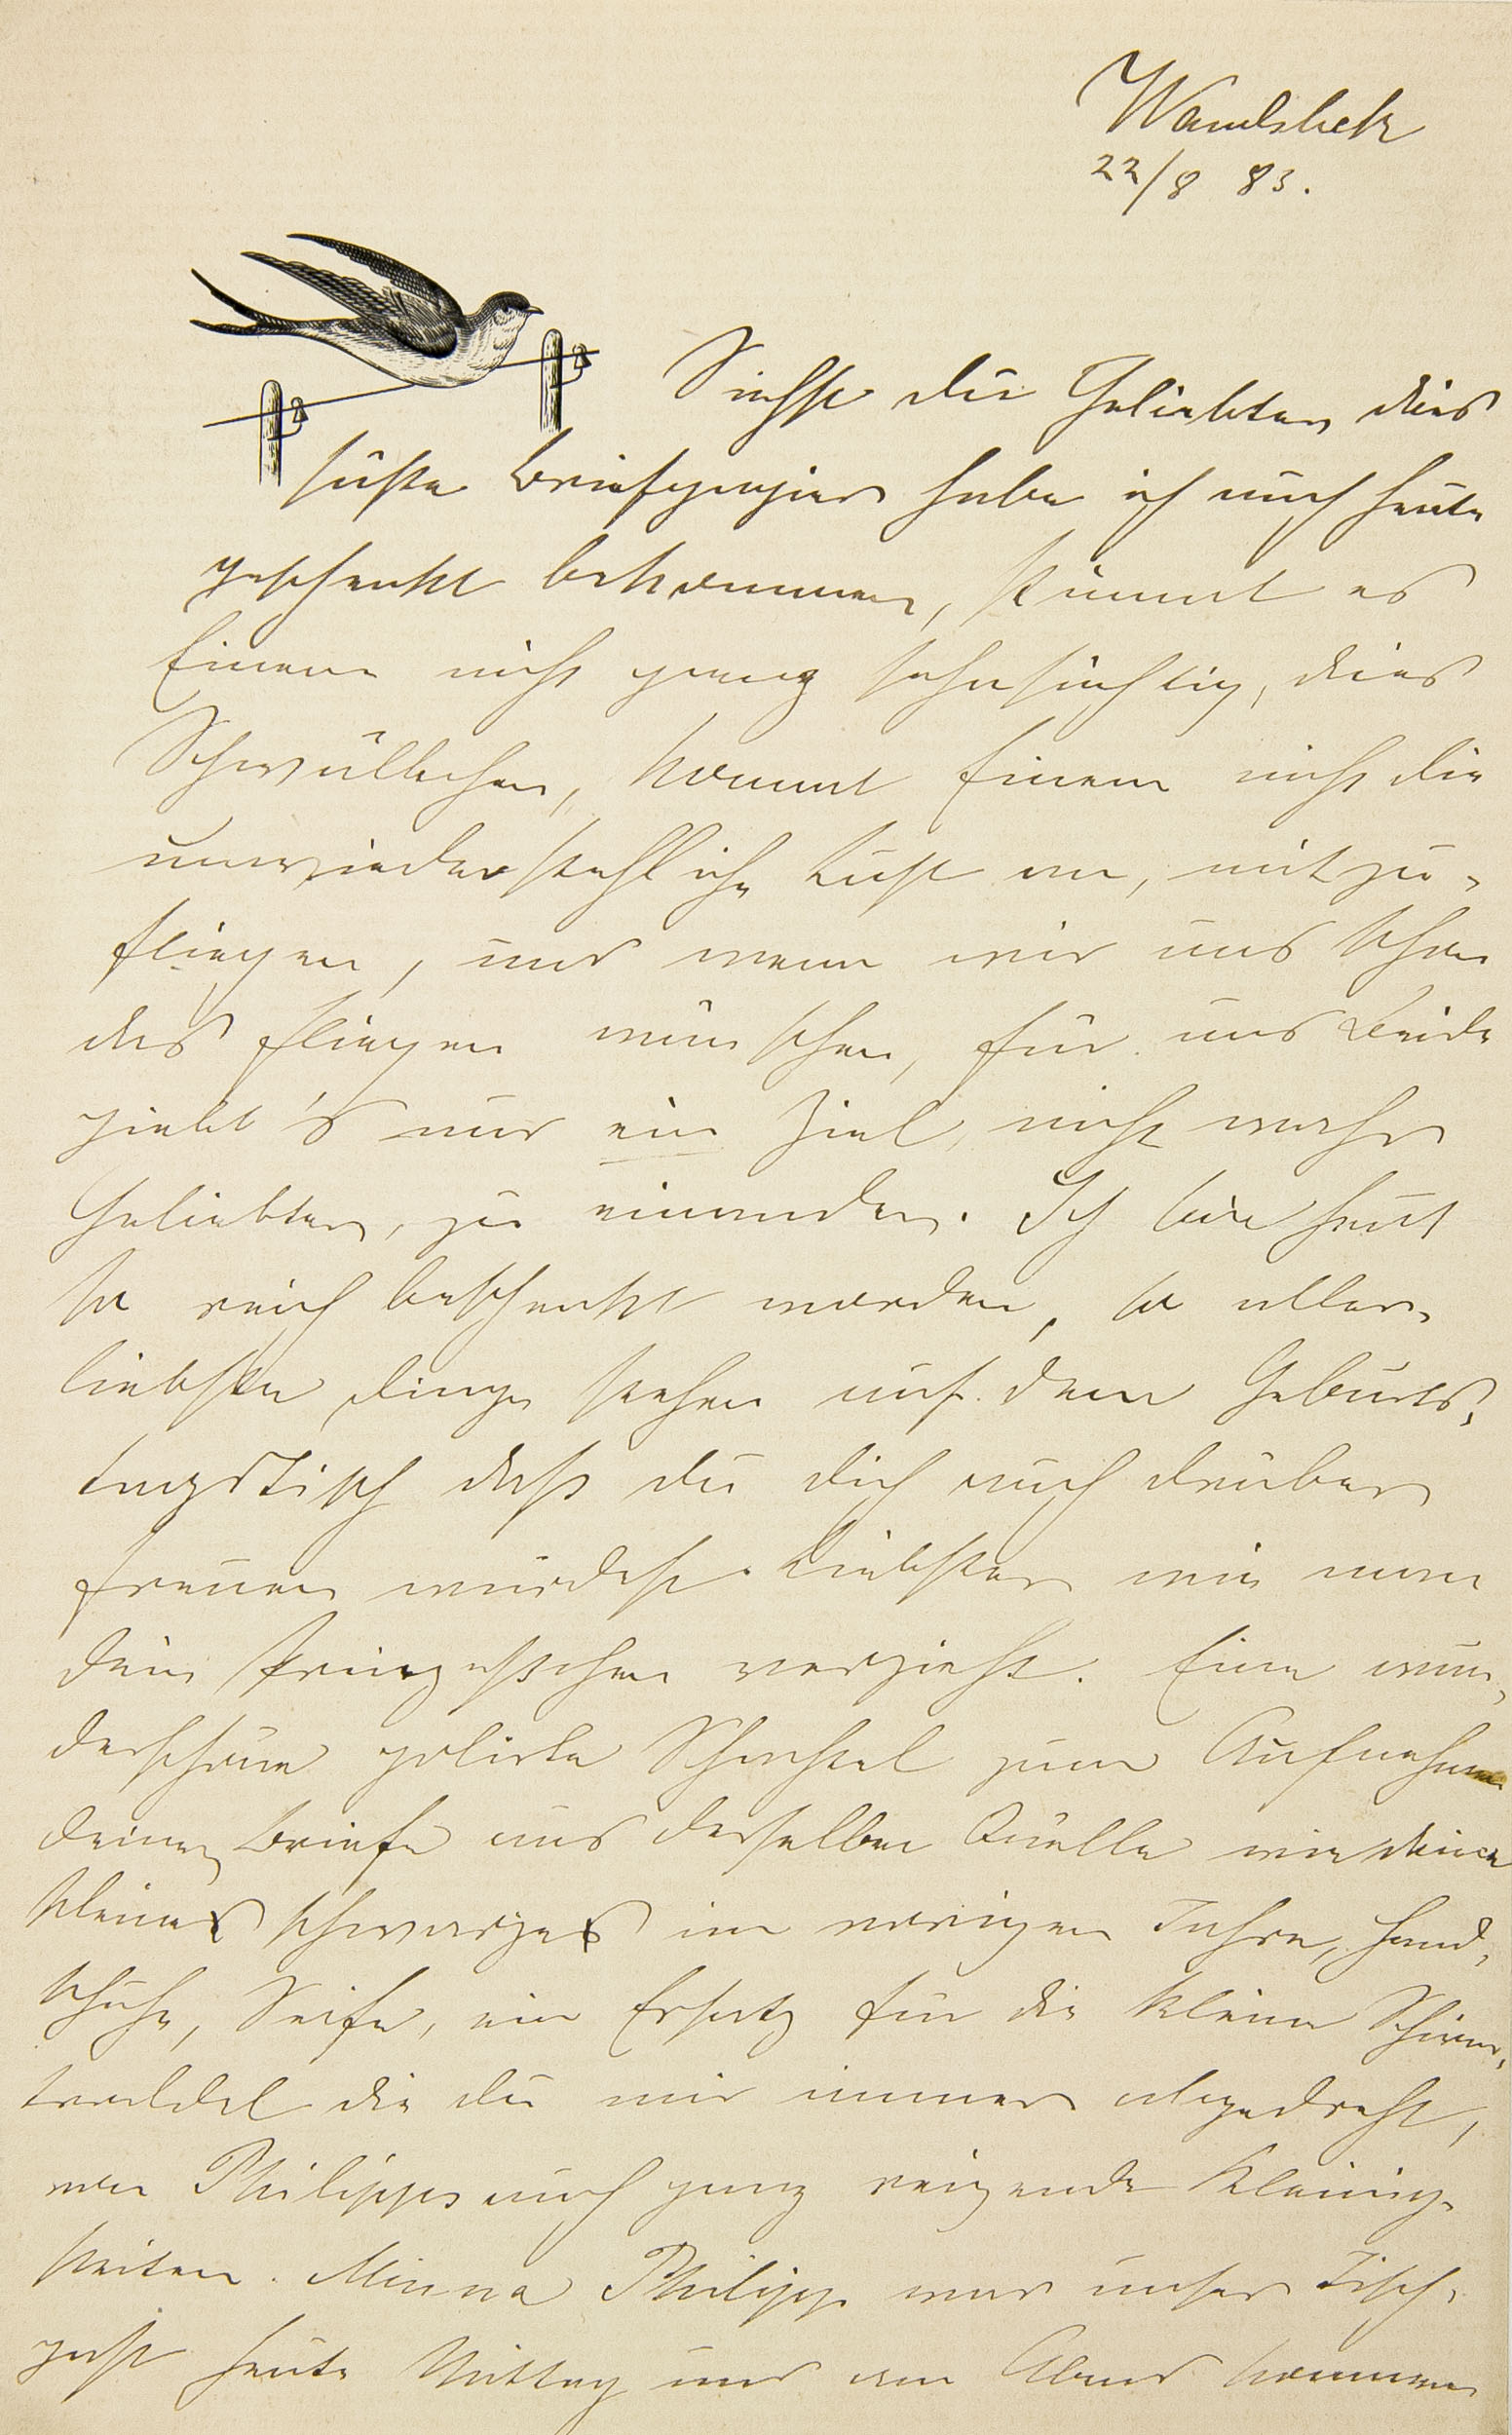 Wandsbek
22/8 83.
Siehst du Geliebter, dies
süße Briefpapier habe ich auch heute
geschenkt bekommen, stimmt es
Einen nicht ganz sehnsüchtig, dies
Schwälbchen, kommt Einem nicht die
unwiederstehliche Lust an, mitzu-
fliegen, und wenn wir uns schon
das fliegen wünschen, für uns Beide
giebt's nur ein Ziel, nicht wahr
Geliebter, zu einander. Ich bin heut
so reich beschenkt worden, so aller-
liebste Dinge stehen auf dem Geburts-
tagstisch daß du dich auch drüber
freuen würdest Liebster wie man
dein Prinzeßchen verzieht. Eine wun-
derschöne polirte Schachtel zum Aufnehmen
deiner Briefe aus derselben Quelle wie deine
kleines schwarzes im vorigen Jahre, Hand-
schuhe, Seife, ein Ersatz für die kleine Schirm-
troddel die du mir immer abgedreht,
von Philipps auch ganz reizende Kleinig-
keiten. Minna Philipp war unser Tisch-
gast heute Mittag und am Abend kommen